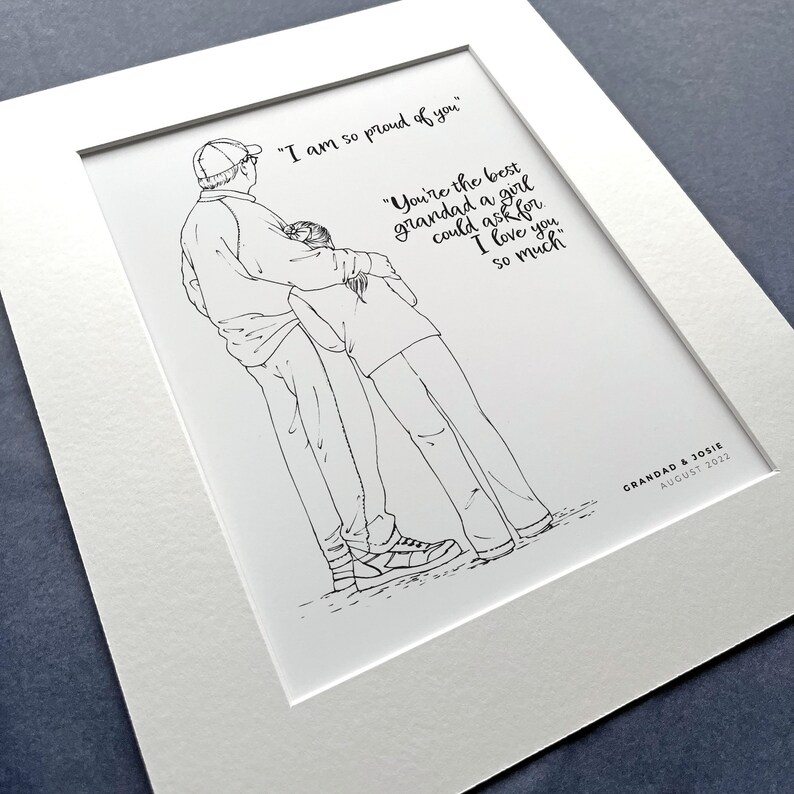 "I am so proud of you"
"You're the best
grandad a girl
could ask for.
I love you
so much"
GRANDAD & JOSIE
AUGUST 2022